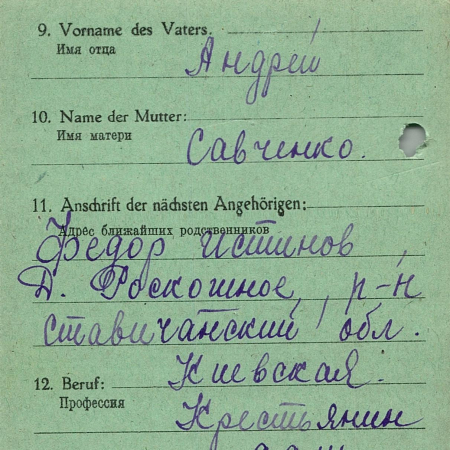 9. Vorname des Vaters:
Имя отца
Андрей
10. Name der Mutter:
Имя матери
Савченко.
11. Anschrift der nächsten Angehörigen:
Адрес ближайших родственников
Федор Истинов,
Д. Роскошное, р-н
Ставичанский обл.
Киевская.
12. Beruf:
Профессия
Крестьянин